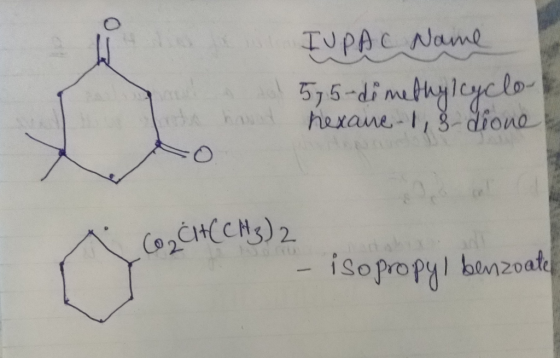 O
IUPAC Name
5,5-dimethylcyclo-
hexane-1,3-dione
O
CO2CH(CH3)2
- isopropyl benzoate